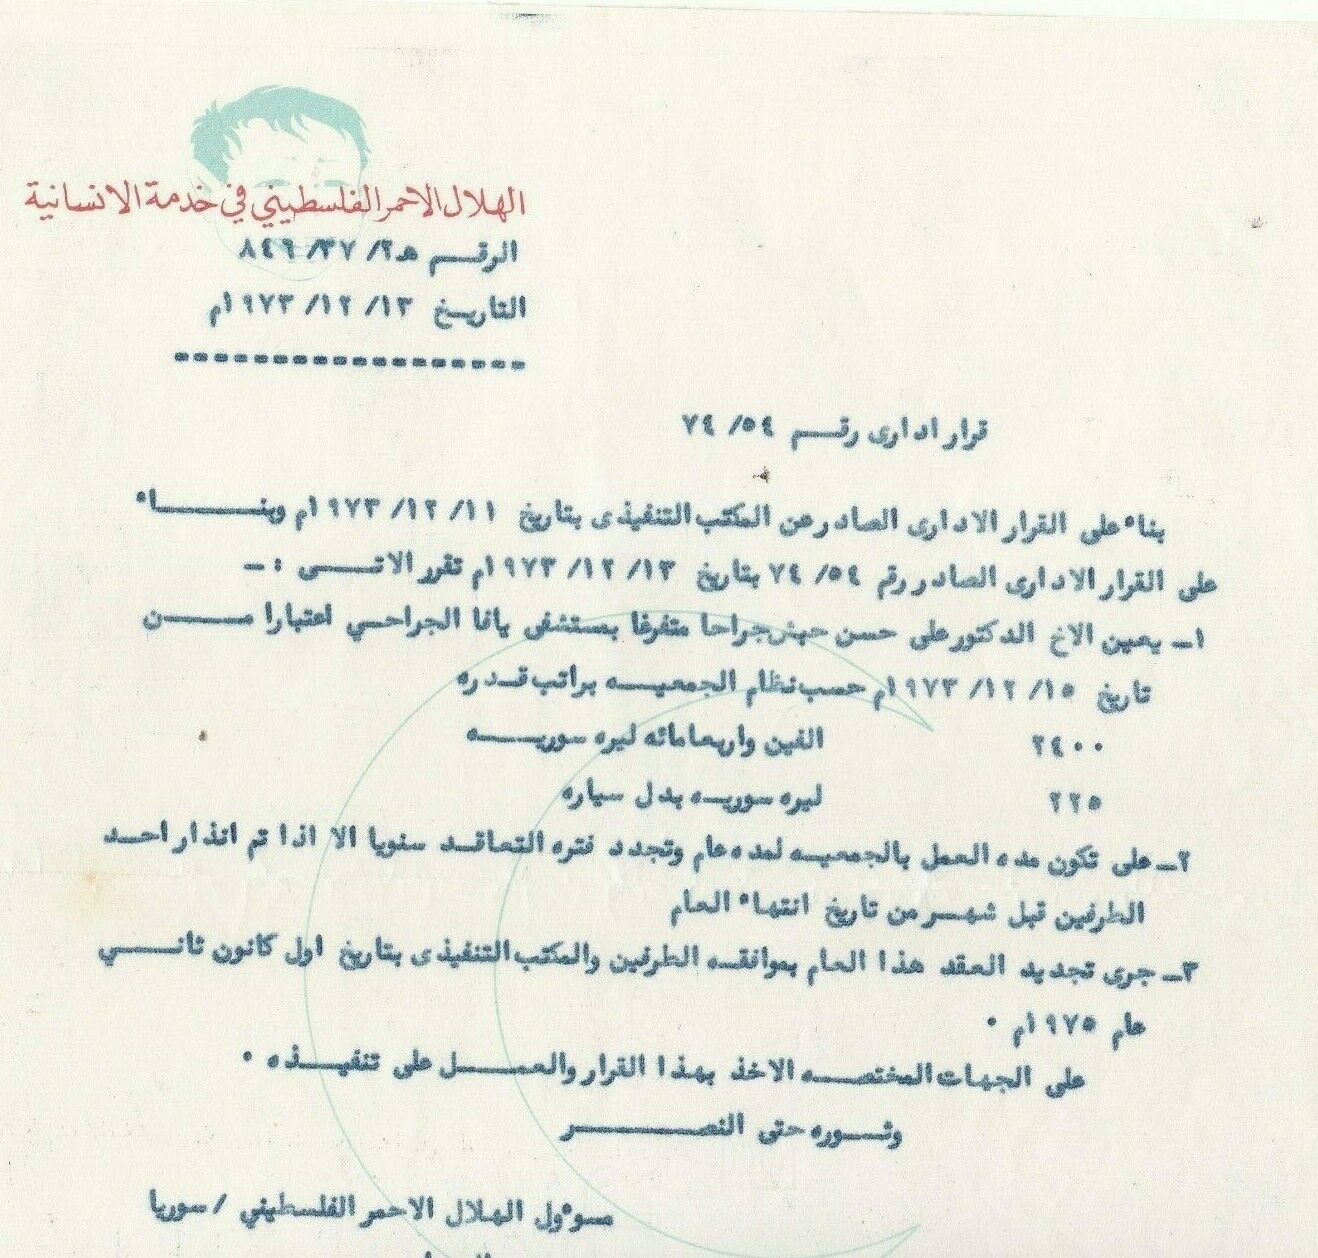 الهلال الاحمر الفلسطيني في خدمة الانسانية
الرقـم هـ٢/ ٣٧/ ٨٤٩
التاريـخ ١٣/ ١٢/ ١٩٧٣م
------------------
قرار ادارى رقـم ٥٤/ ٧٤
بناء على القرار الادارى الصادر عن المكتب التنفيذى بتاريخ ١١/ ١٢/ ١٩٧٣م وبنـــــاء
على القرار الادارى الصادر رقم ٥٤/ ٧٤ بتاريخ ١٣/ ١٢/ ١٩٧٣م تقرر الاتـــى : ـ
١ـ يعين الاخ الدكتور على حسن حبش جراحا متفرغا بمستشفى يافا الجراحـي اعتبارا مـــــن
تاريخ ١٥/ ١٢/ ١٩٧٣م حسب نظام الجمعيـه براتب قـدره
٢٤٠٠ الفين واربعمائه ليره سوريـــه
٢٢٥ ليره سوريـه بدل سياره
٢ـ على تكون مده العمل بالجمعيـه لمده عام وتجدد فتره التعاقـد سنويا الا اذا تم انذار احـد
الطرفين قبل شهـر من تاريخ انتهاء العام
٣ـ جرى تجديد العقد هذا العام بموافقـه الطرفين والمكتب التنفيذى بتاريخ اول كانون ثانـــي
عام ١٩٧٥م ٠
على الجهات المختصـه الاخذ بهذا القرار والعمـــل على تنفيـــذه ٠
وثـــوره حتى النصــــــــر
مسوءول الهلال الاحمر الفلسطيني / سوريا